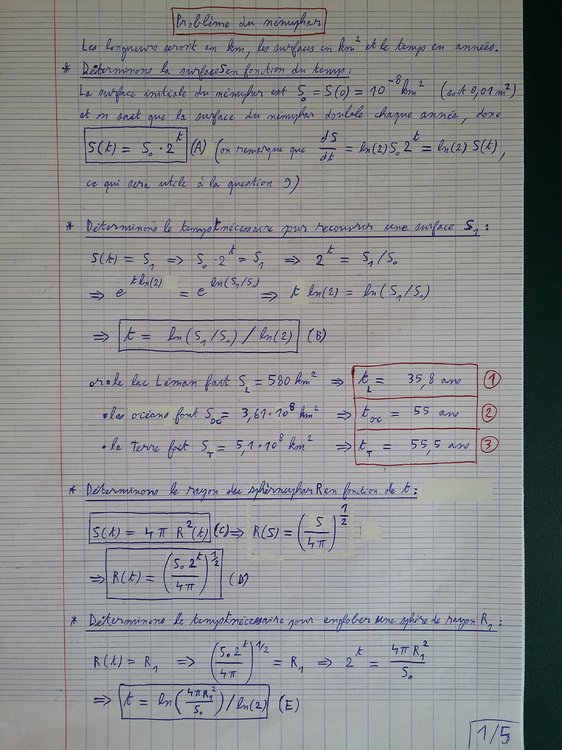 Problème du nénuphar
Les longueurs seront en km, les surfaces en km² et le temps en années.
* Déterminons la surface S en fonction du temps :
La surface initiale du nénuphar est S₀ = S(0) = 10⁻⁸ km² (soit 0,01 m²)
et on sait que la surface du nénuphar double chaque année, donc
S(t) = S₀ · 2ᵗ (A) (on remarque que dS/dt = ln(2) S₀ 2ᵗ = ln(2) S(t),
ce qui sera utile à la question 9)
* Déterminons le temps t nécessaire pour recouvrir une surface S₁ :
S(t) = S₁ => S₀ · 2ᵗ = S₁ => 2ᵗ = S₁/S₀
=> e^(t ln(2)) = e^(ln(S₁/S₀)) => t ln(2) = ln(S₁/S₀)
=> t = ln(S₁/S₀) / ln(2) (B)
or • le lac Léman fait S_L = 580 km² => t_L = 35,8 ans ①
• les océans font S_oc = 3,61 · 10⁸ km² => t_oc = 55 ans ②
• la Terre fait S_T = 5,1 · 10⁸ km² => t_T = 55,5 ans ③
* Déterminons le rayon du sphérnuphar R en fonction de t :
S(t) = 4π R²(t) (C) => R(S) = (S/4π)^(1/2)
=> R(t) = (S₀ 2ᵗ/4π)^(1/2) (D)
* Déterminons le temps t nécessaire pour englober une sphère de rayon R₁ :
R(t) = R₁ => (S₀ 2ᵗ/4π)^(1/2) = R₁ => 2ᵗ = 4πR₁²/S₀
=> t = ln(4πR₁²/S₀) / ln(2) (E)
1/5